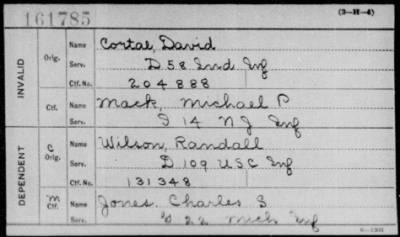 161785 (3-H-4)
INVALID
Orig. Name Cortal, David
Serv. D 58 Ind Inf
Ctf. No. 204888
Ctf. Name Mack, Michael P
Serv. I 14 NJ Inf
DEPENDENT
C Orig. Name Wilson, Randall
Serv. D 109 USC Inf
Ctf. No. 131348
M Ctf. Name Jones. Charles S
Serv. 22 Mich Inf